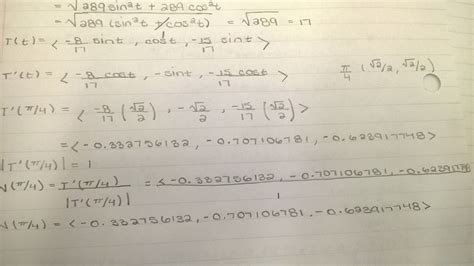 = √289 sin²t + 289 cos²t
= √289 (sin²t + cos²t) = √289 = 17
T(t) = < -8/17 sint, cost, -15/17 sint >
T'(t) = < -8/17 cost, -sint, -15/17 cost > π/4 (√2/2, √2/2)
T'(π/4) = < -8/17 (√2/2), -√2/2, -15/17 (√2/2) >
= < -0.332756132, -0.707106781, -0.623917748 >
|T'(π/4)| = 1
N(π/4) = T'(π/4) / |T'(π/4)| = < -0.332756132, -0.707106781, -0.6239177 / 1
N(π/4) = < -0.332756132, -0.707106781, -0.623917748 >